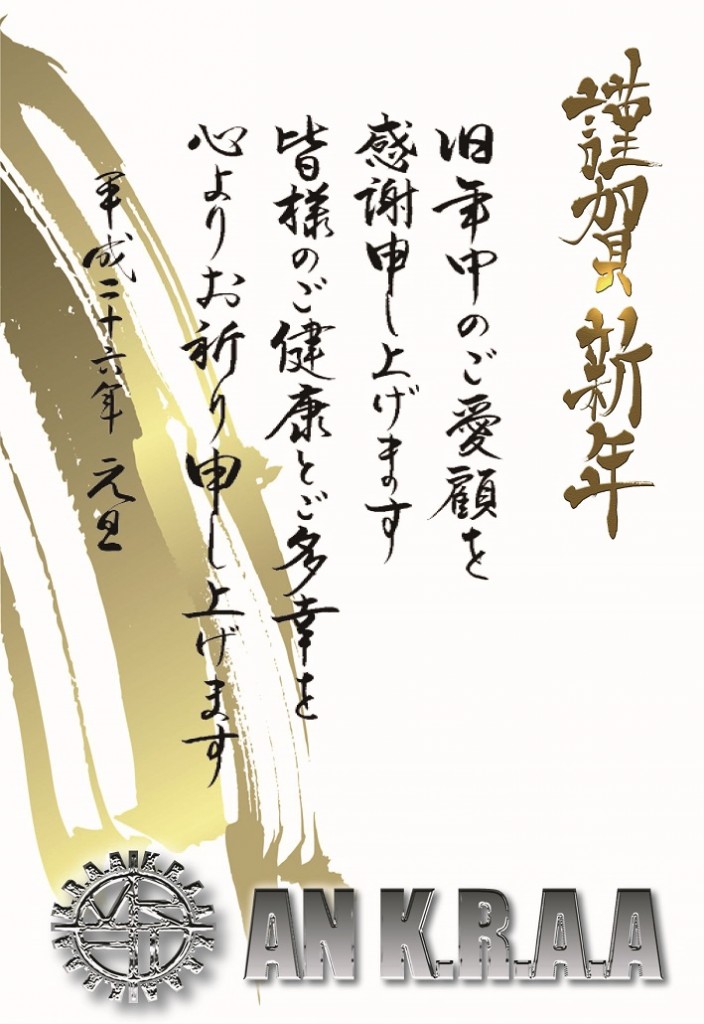 謹賀新年
旧年中のご愛顧を
感謝申し上げます
皆様のご健康とご多幸を
心よりお祈り申し上げます
平成二十六年 元旦
AN K.R.A.A